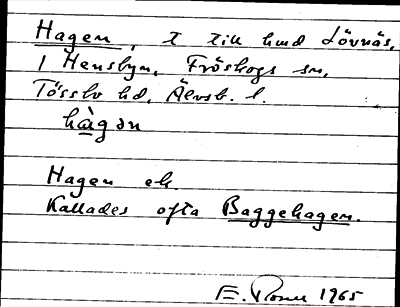 Hagen, t till hmd Lövnäs,
1 Hensbyn, Fröskogs sn,
Tössbo hd, Älvsb. l.
hàgən
Hagen ek.
Kallades ofta Baggehagen.
E. 1965